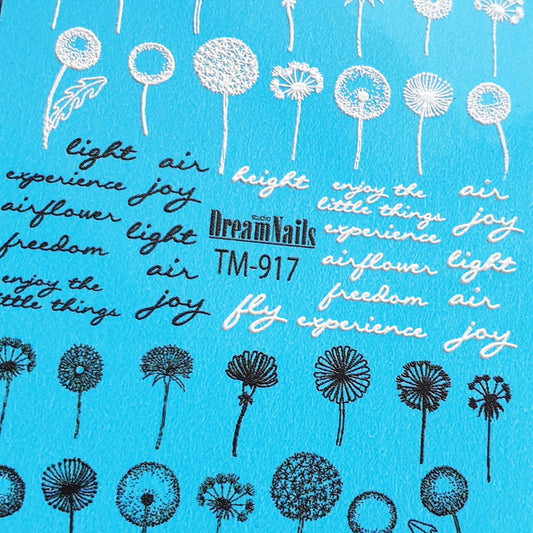 light air
experience joy
airflower light
freedom air
enjoy the
little things joy
studio
DreamNails
TM-917
height enjoy the
little things air
experience joy
airflower light
freedom air
fly experience joy